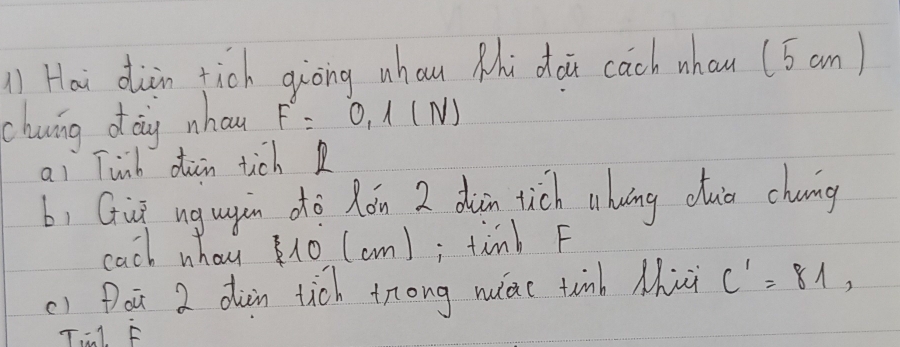 1) Hai điện tích giống nhau khi đặt cách nhau (5 cm)
chúng đẩy nhau F = 0,1 (N)
a) Tính điện tích
b, Giữ nguyên độ lớn 2 điện tích nhưng đưa chúng
cách nhau 10 (cm) ; tính F
c) Đặt 2 điện tích trong nước tinh khiết C' = 81,
Tính F